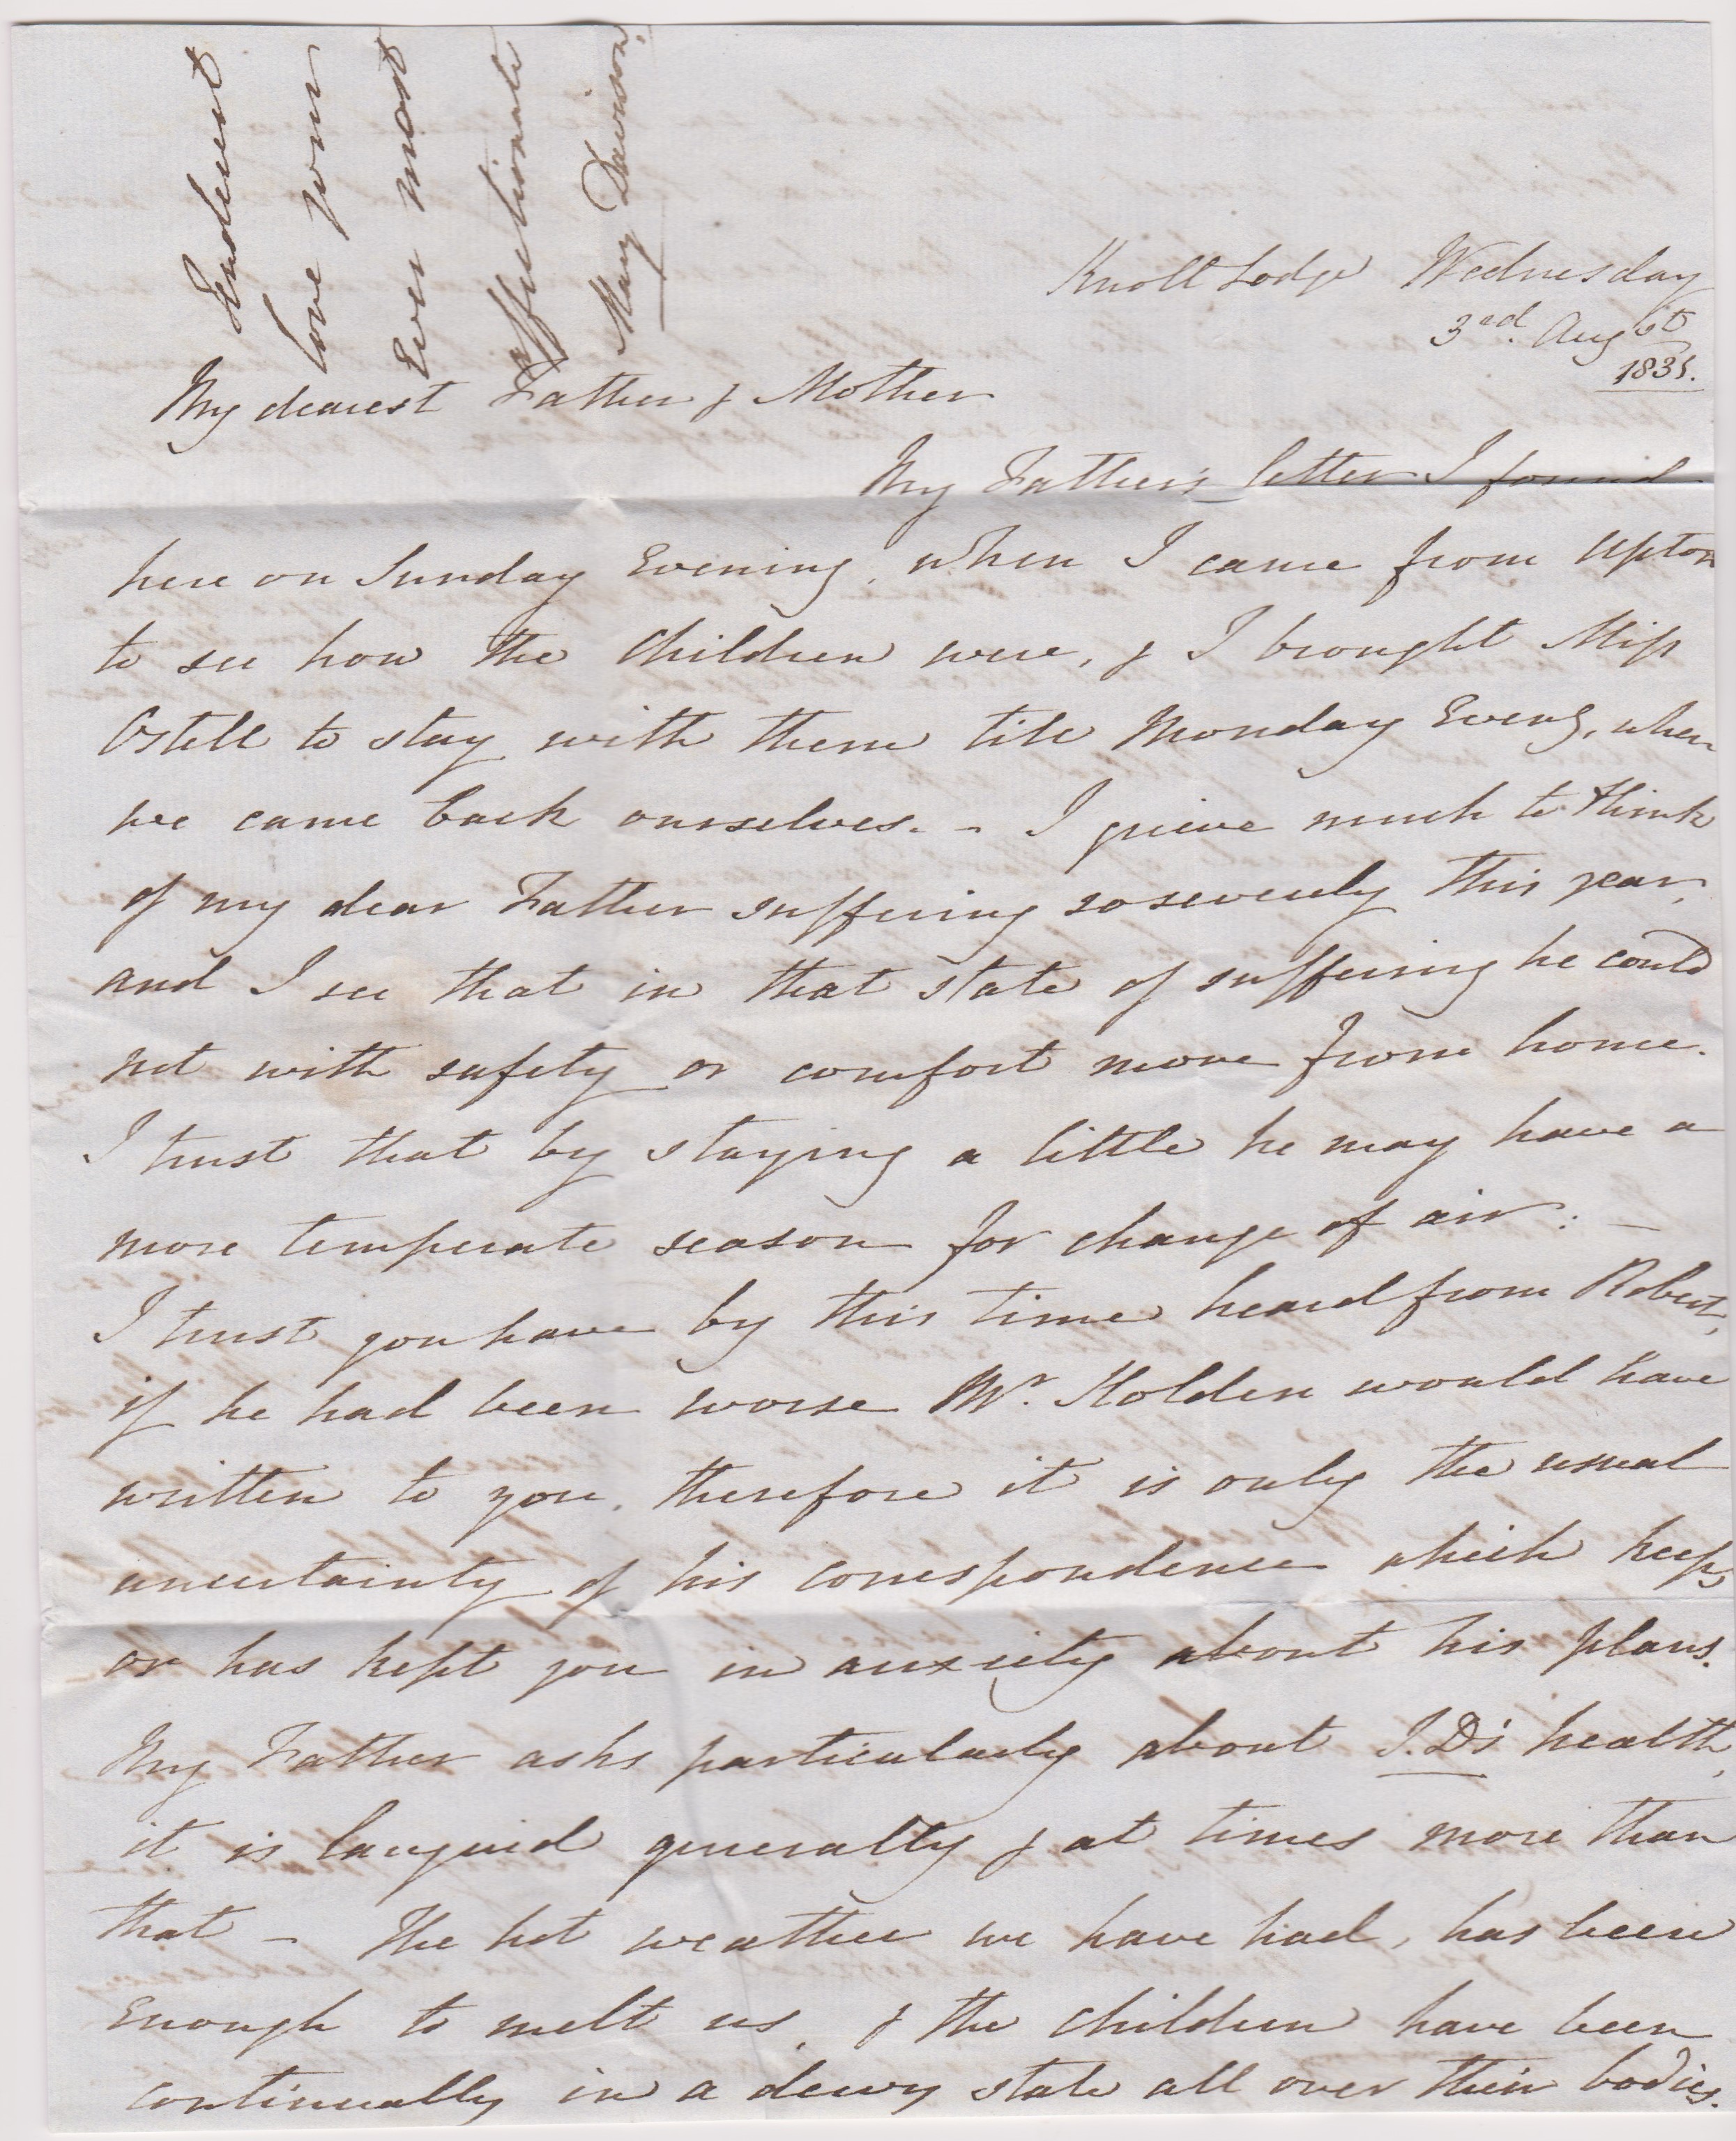 Knott Lodge Wednesday
3rd. Augst
1831.
My dearest Father & Mother
My Father's letter I found
here on Sunday Evening, when I came from Upton
to see how the Children were, & I brought Miss
Ostell to stay with them till Monday Eveng, when
we came back ourselves. - I grieve much to think
of my dear Father suffering so severely this year,
and I see that in that state of suffering he could
not with safety or comfort move from home.
I trust that by staying a little he may have a
more temperate season for change of air: -
I trust you have by this time heard from Robert,
if he had been worse Mr. Holden would have
written to you, therefore it is only the usual
uncertainty of his correspondence which keeps
or has kept you in anxiety about his plans.
My Father asks particularly about J.D's health,
it is languid generally & at times more than
that - The hot weather we have had, has been
Enough to melt us, & the Children have been
continually in a dewy state all over their bodies.
love your
Ever most
affectionate
Mary Dawson.